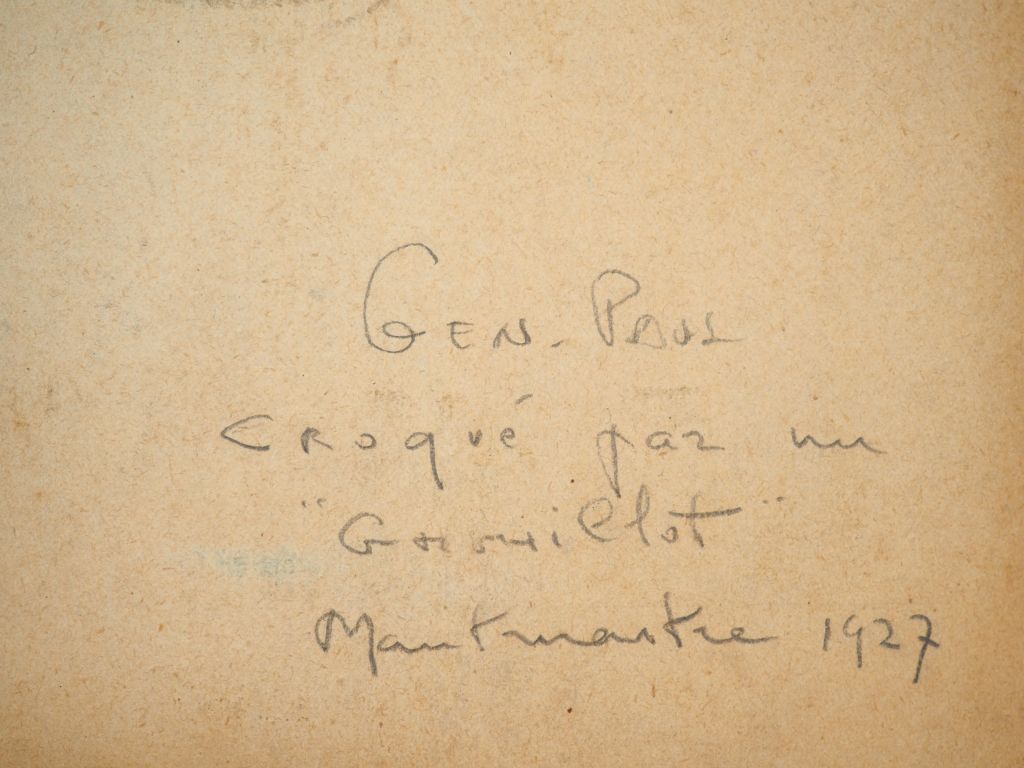 GEN-PAUL
CROqué par un
Montmartre 1927